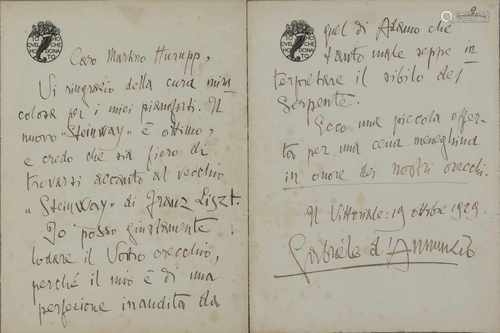 IO HO QUEL CHE HO DONATO
Caro Martino Hurupp,
Vi ringrazio della cura mira
colosa per i miei pianoforti. Il
nuovo "Steinway" è ottimo,
e credo che sia fiero di
trovarsi accanto al vecchio
"Steinway" di Franz Liszt.
Io posso giustamente
lodare il Vostro orecchio,
perché il mio è di una
perfezione inaudita da
quel di Adamo che
tanto male seppe in
terpretare il sibilo del
Serpente.
Ecco una piccola offer
ta per una cena meneghina
in onore dei nostri orecchi.
Il Vittoriale: 19 ottobre 1929
Gabriele d'Annunzio